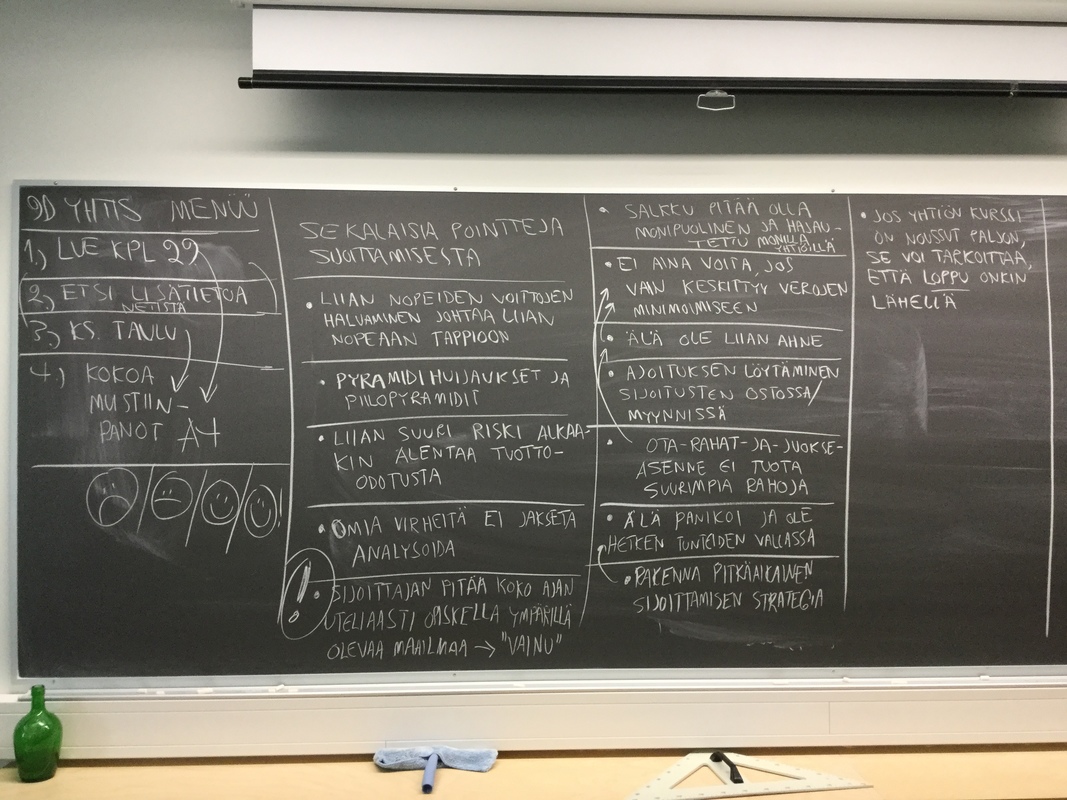 9D YHTIS MENÜÜ
1) LUE KPL 29
2) ETSI LISÄTIETOA
NETISTÄ
3) KS. TAULU
4) KOKOA
MUSTIIN-
PANOT A4
SEKALAISIA POINTTEJA
SIJOITTAMISESTA
• LIIAN NOPEIDEN VOITTOJEN
HALUAMINEN JOHTAA LIIAN
NOPEAAN TAPPIOON
• PYRAMIDIHUIJAUKSET JA
PIILOPYRAMIDIT
• LIIAN SUURI RISKI ALKAA-
KIN ALENTAA TUOTTO-
ODOTUSTA
• OMIA VIRHEITÄ EI JAKSETA
ANALYSOIDA
! • SIJOITTAJAN PITÄÄ KOKO AJAN
UTELIAASTI OPISKELLA YMPÄRILLÄ
OLEVAA MAAILMAA → "VAINU"
• SALKKU PITÄÄ OLLA
MONIPUOLINEN JA HAJAU-
TETTU MONILLA
YHTIÖILLÄ
• EI AINA VOITA, JOS
VAIN KESKITTYY VEROJEN
MINIMOIMISEEN
• ÄLÄ OLE LIIAN AHNE
• AJOITUKSEN LÖYTÄMINEN
SIJOITUSTEN OSTOSSA/
MYYNNISSÄ
• OTA-RAHAT-JA-JUOKSE-
ASENNE EI TUOTA
SUURIMPIA RAHOJA
• ÄLÄ PANIKOI JA OLE
HETKEN TUNTEIDEN VALLASSA
• RAKENNA PITKÄAIKAINEN
SIJOITTAMISEN STRATEGIA
• JOS YHTIÖN KURSSI
ON NOUSSUT PALJON,
SE VOI TARKOITTAA,
ETTÄ LOPPU ONKIN
LÄHELLÄ